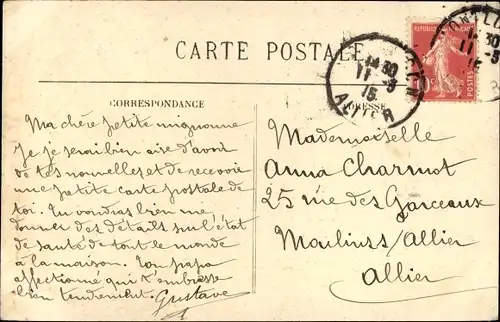 CARTE POSTALE
CORRESPONDANCE
ADRESSE
Ma chère petite mignonne
Je serai bien aise d'avoir
de tes nouvelles et de recevoir
une petite carte postale de
toi. Tu voudras bien me
donner des détails sur l'état
de santé de tout le monde
à la maison. Ton papa
affectionné qui t'embrasse
bien tendrement. Gustave
Mademoiselle
Anna Charmot
25 rue des Garceaux
Moulins s/Allier
Allier
11 30
11-3
15
ALLIER
POSTES
10c